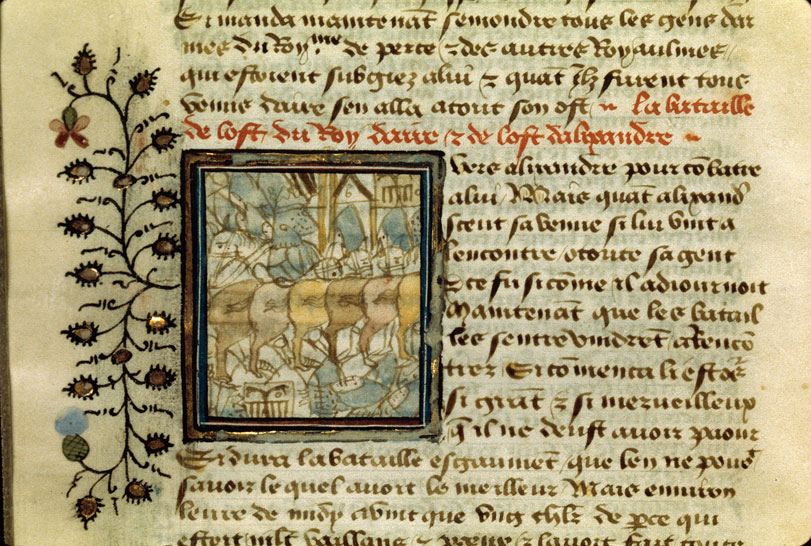 Et manda maintenant semondre tous les gens dar
mes du Roy.me de perce & des autres Royaulmes
qui estoient subgiez a lui & quāt ilz furent tous
venus daire sen alla a tout son ost la bataille
de lost du Roy daire & de lost dalixandre
vers alixandre pour cōbatre
a lui Mais quāt alixand
sceut sa venue si lui vint a
lencontre a toute sa gent
& ce fu si cōme il adiournoit
Maintenant que les batail
les sentre vindrēt a lencō
trer Et cōmenca li
si grāt & si merveilleux
q̄ il ne deust avoir paour
Et dura la bataille que len ne
savoir le quel avoit le meilleur Mais environ
leure de avint que vng chlr de perce qui
estoit mlt vaillans & preux & lavoit fait toute